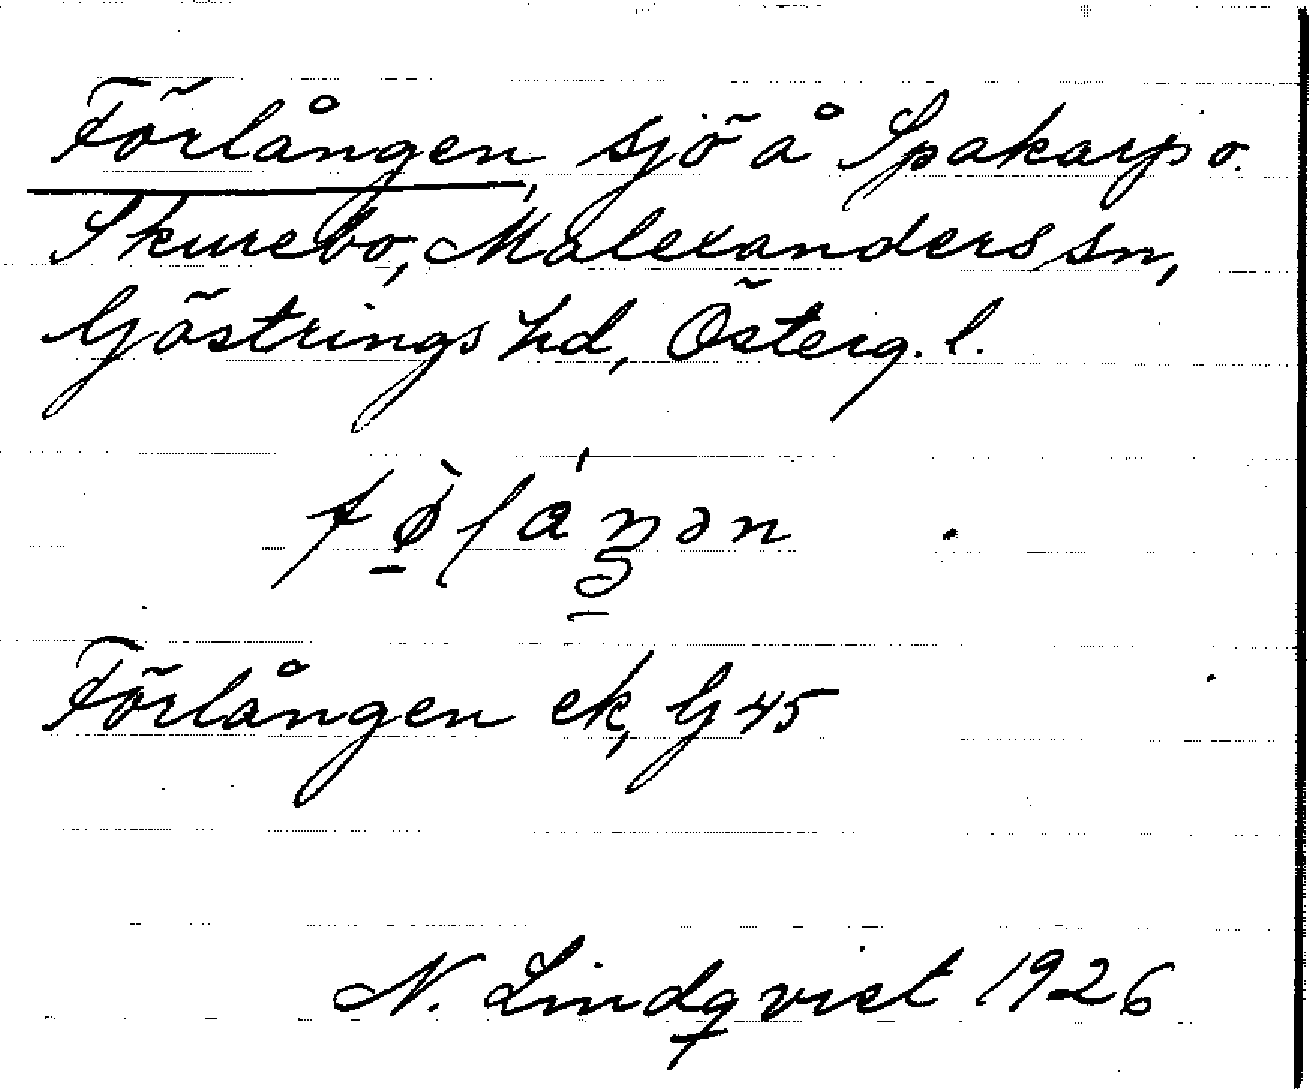 Förlången, sjö å Spakarp o.
Skurebo, Malexanders sn,
Göstrings hd, Österg. l.
Förlången ek, G 45
N. Lindqvist 1926